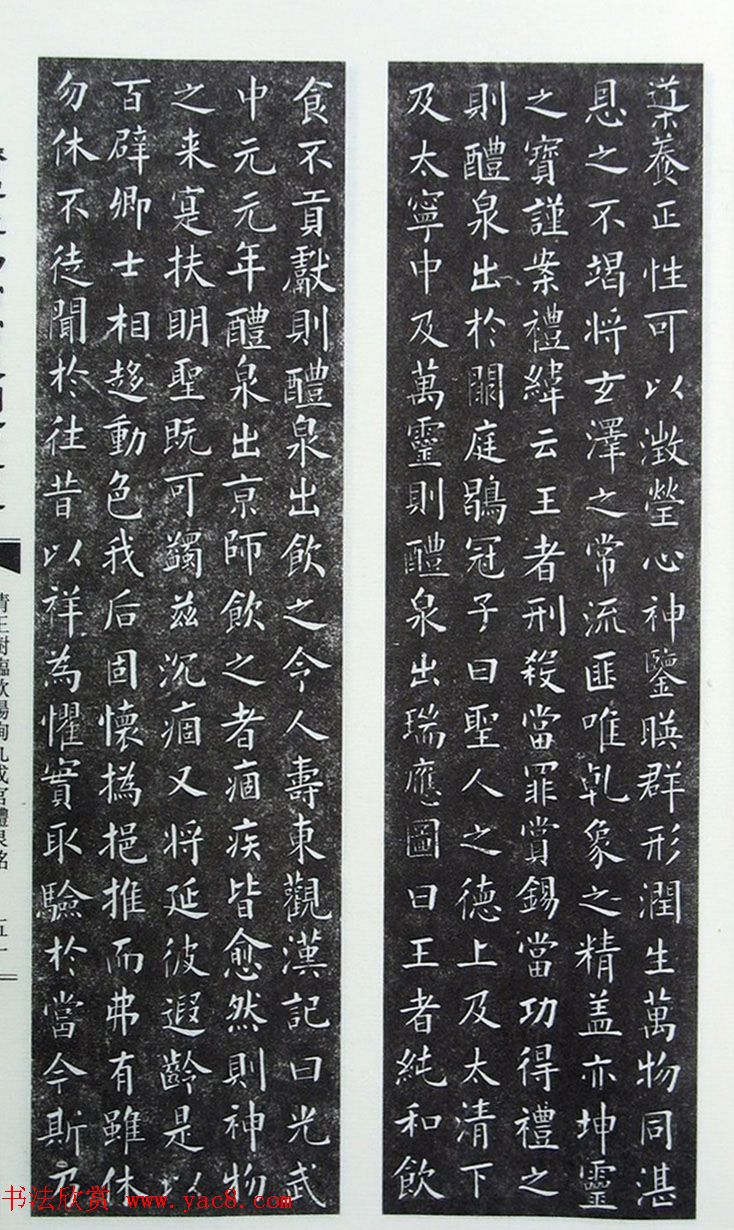 導養正性可以澂瑩心神鑒暎群形潤生萬物同湛
恩之不竭将玄澤之常流匪唯乹象之精盖亦坤靈
之寳謹案禮緯云王者刑殺當罪賞錫當功得禮之
則醴泉出於闕庭鶡冠子曰聖人之德上及太清下
及太寧中及萬靈則醴泉出瑞應圖曰王者純和飲
食不貢獻則醴泉出飲之令人壽東觀漢記曰光武
中元元年醴泉出京師飲之者痼疾皆愈然則神物
之来寔扶明聖既可蠲兹沉痼又将延彼遐齡是以
百辟卿士相趍動色我后固懷撝挹推而弗有雖休
勿休不徒聞於往昔以祥為懼實取驗於當今斯乃
清王澍臨歐陽詢九成宮醴泉銘
五一
书法欣赏 www.yac8.com